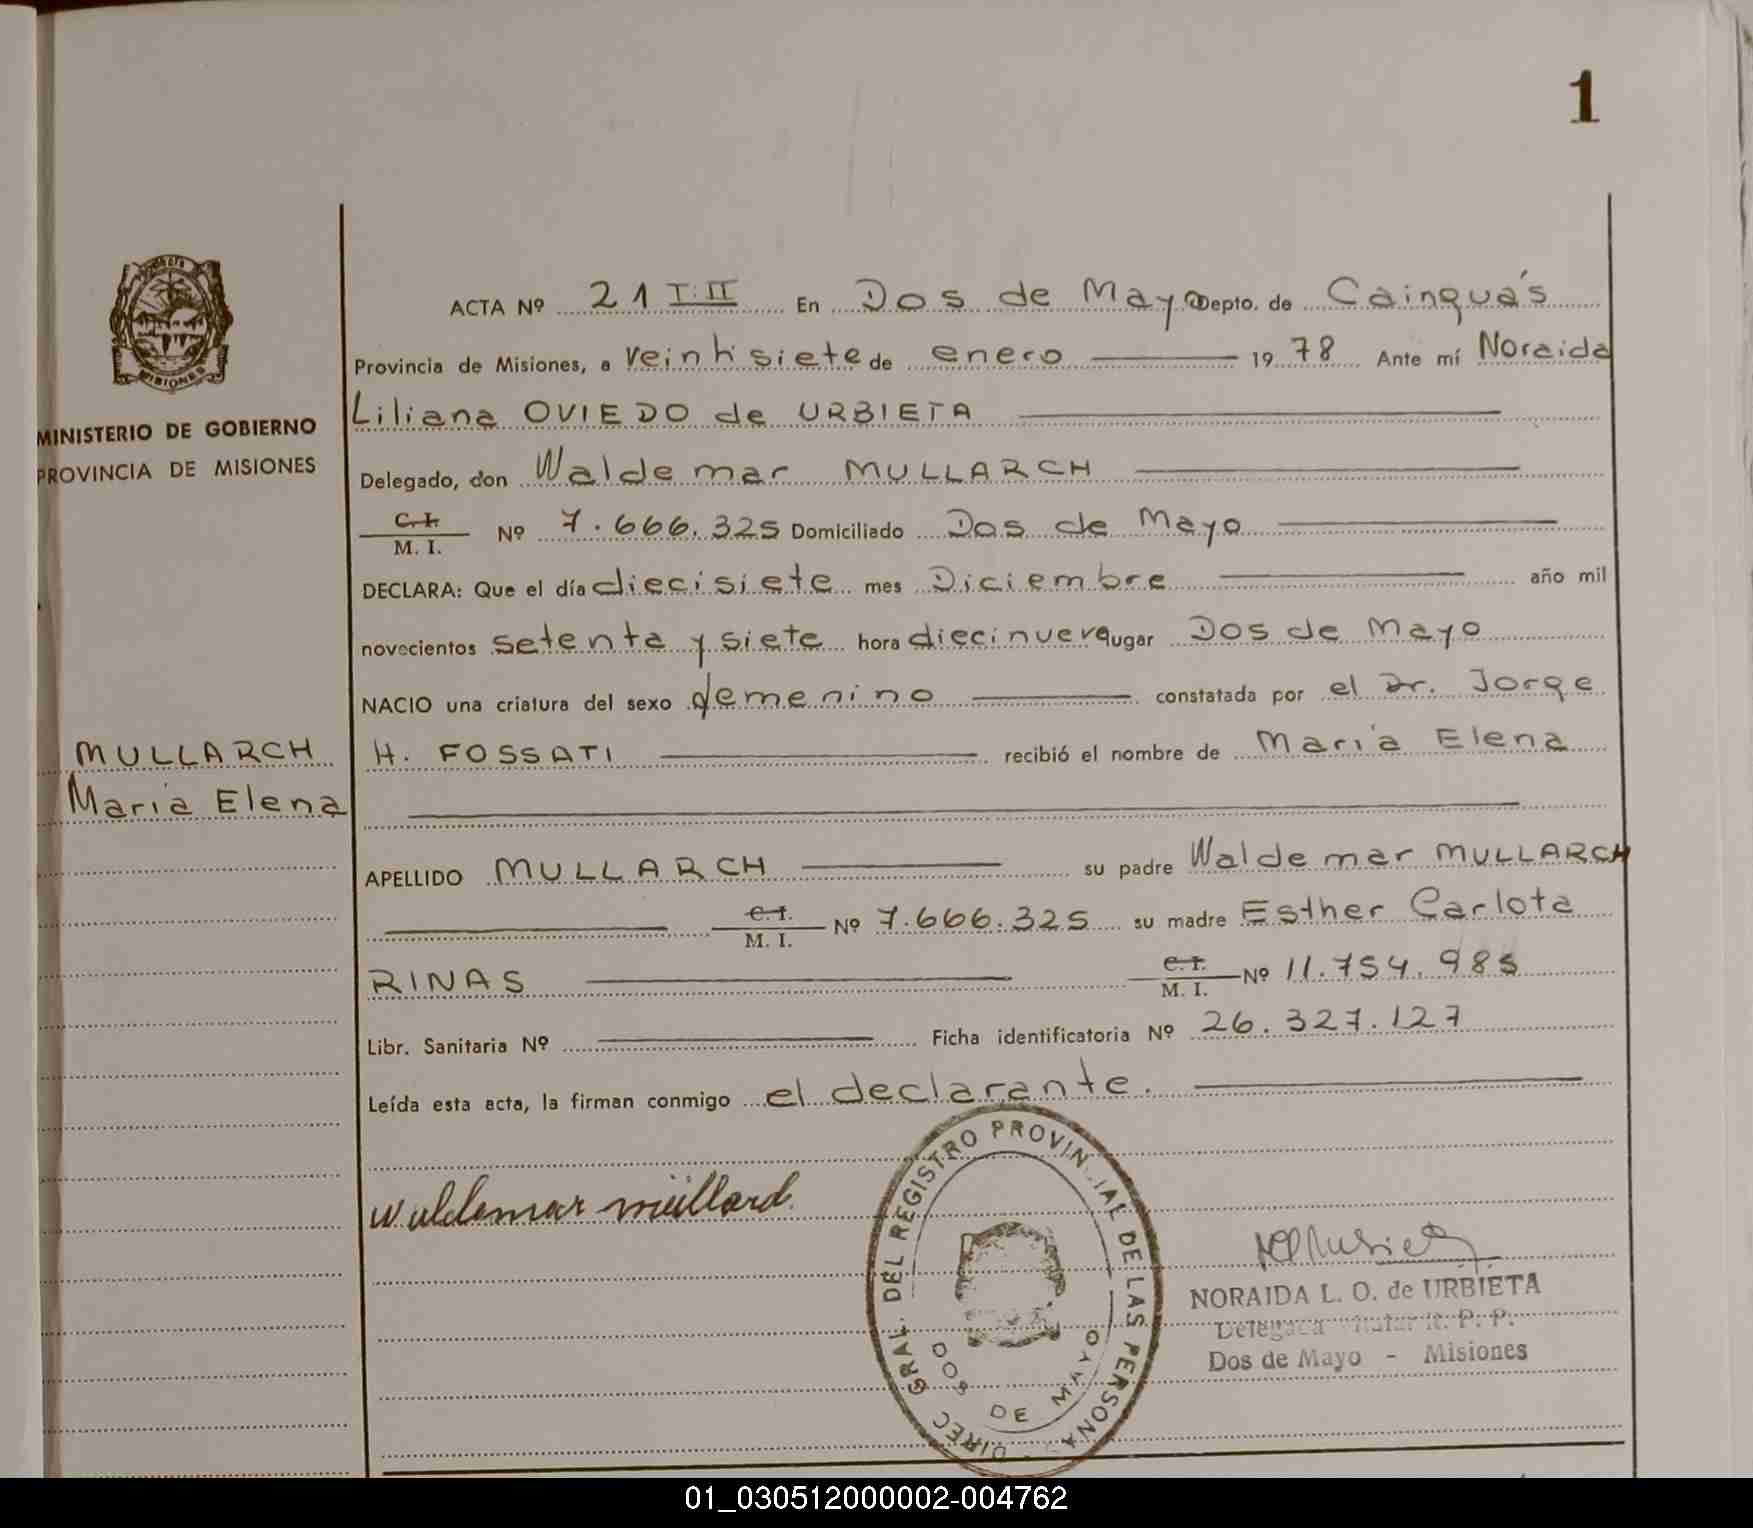 1
ACTA Nº 21 T: II En Dos de Mayo Depto. de Cainguás
Provincia de Misiones, a veintisiete de enero 19 78 Ante mí Noraida
Liliana OVIEDO de URBIETA
MINISTERIO DE GOBIERNO
PROVINCIA DE MISIONES
Delegado, don Waldemar MULLARCH
C. I.
M. I. Nº 7.666.325 Domiciliado Dos de Mayo
DECLARA: Que el día diecisiete mes Diciembre año mil
novecientos setenta y siete hora diecinueve lugar Dos de Mayo
NACIO una criatura del sexo femenino constatada por el Dr. Jorge
MULLARCH
María Elena
H. FOSSATI recibió el nombre de María Elena
APELLIDO MULLARCH su padre Waldemar MULLARCH
C. I.
M. I. Nº 7.666.325 su madre Esther Carlota
RINAS C. I.
M. I. Nº 11.754.985
Libr. Sanitaria Nº Ficha identificatoria Nº 26.327.127
Leída esta acta, la firman conmigo el declarante.
DIREC GRAL. DEL REGISTRO PROVINCIAL DE LAS PERSONAS
DOS DE MAYO
Waldemar müllard.
NORAIDA L. O. de URBIETA
Delegada Titular R. P. P.
Dos de Mayo - Misiones
01_030512000002-004762